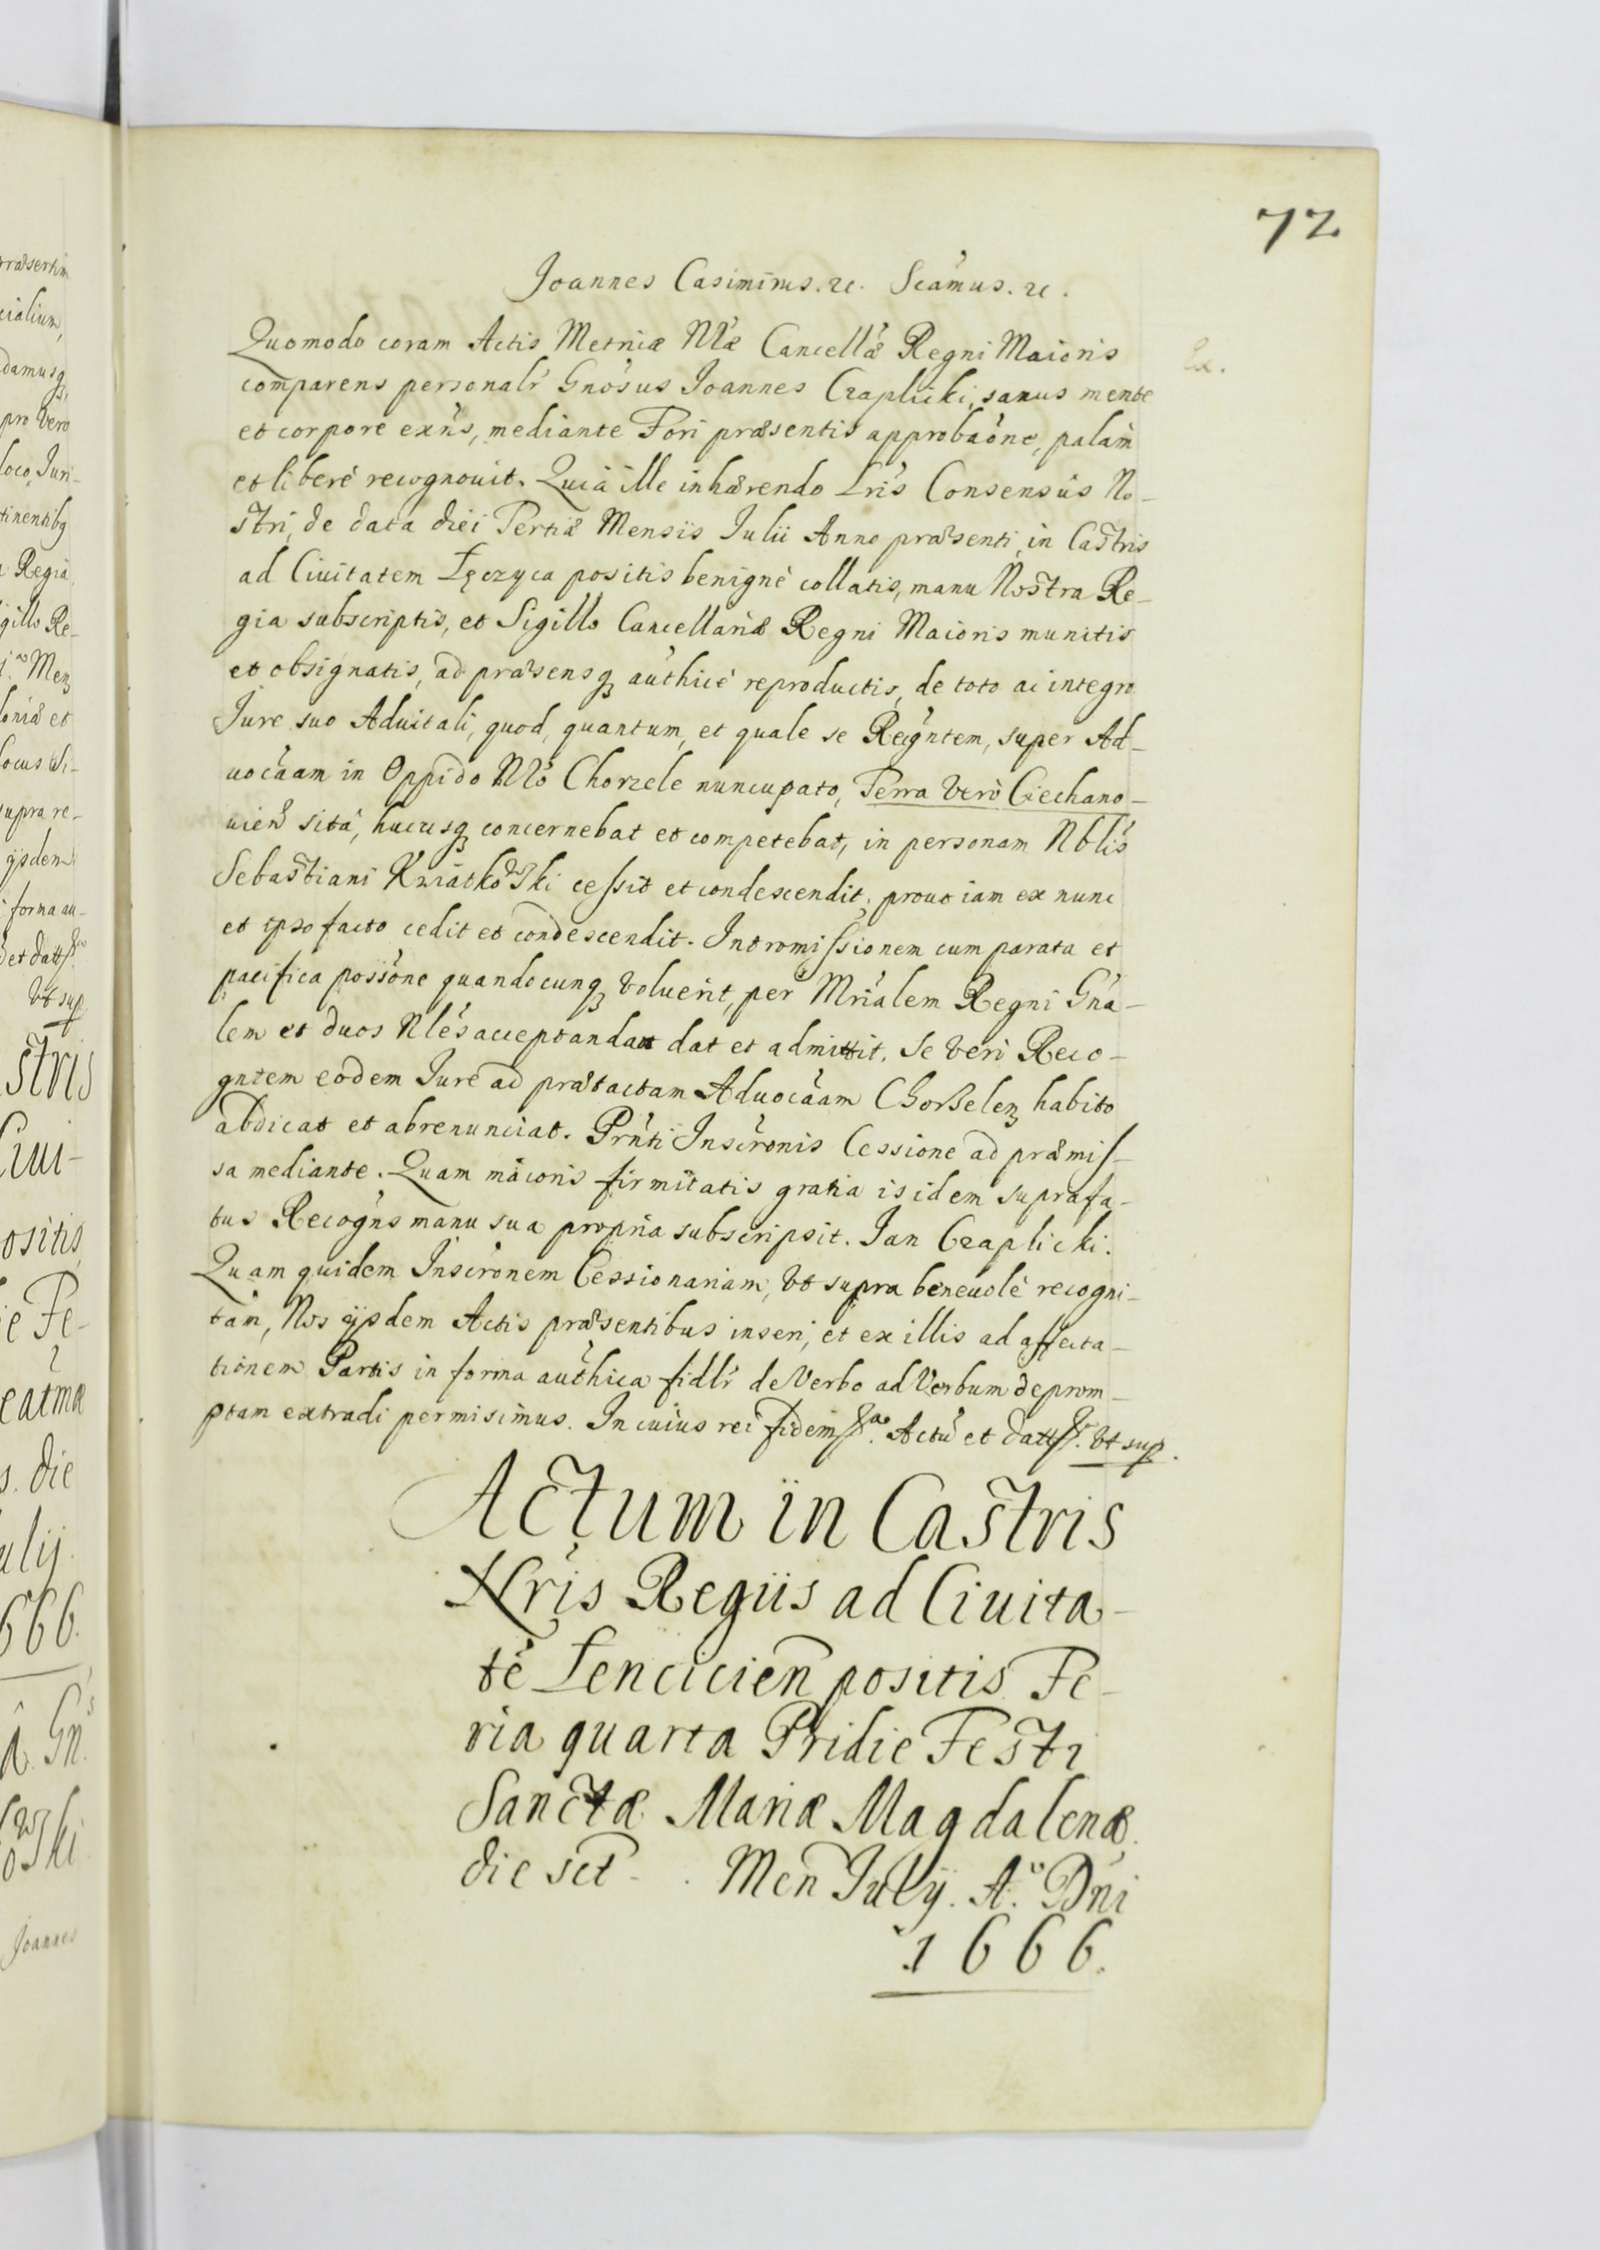 72
Joannes Casimirus. &c. Scamus. &c.
Ex.
Quomodo coram Actis Metricæ Nræ Cancellæ Regni Maioris
comparens personalr Gnosus Joannes Czaplicki, sanus mente
et corpore exns, mediante Fori præsentis approbaone, palam
et liberè recognouit. Quià ille inhærendo Lris Consensus No-
stri, de data diei Tertiæ Mensis Julii Anno præsenti, in Castris
ad Ciuitatem Łęczyca positis benignè collatis, manu Nostra Re-
gia subscriptis, et Sigillo Cancellariæ Regni Maioris munitis
et obsignatis, ad præsensq authicè reproductis, de toto ac integro
Jure suo Aduitali, quod, quantum, et quale se Recgntem, super Ad-
uocãam in Oppido Nro Chorzele nuncupato, Terra Verò Ciechano-
uien sità, hucusq concernebat et competebat, in personam Nblis
Sebastiani Kwiatkowski cessit et condescendit, prout iam ex nunc
et ipso facto cedit et condescendit. Intromissionem cum parata et
pacifica possone quandocunq Voluerit, per Mrialem Regni Gna-
lem et duos Nles acceptandam dat et admittit. Se Verò Reco-
gntem eodem Jure ad prætactam Aduocãam Chorzelen habito
abdicat et abrenunciat. Prnti Inscronis Cessione ad præmis-
sa mediante. Quam maioris firmitatis gratia is idem suprafa-
tus Recogns manu sua propria subscripsit. Jan Czaplicki.
Quam quidem Inscronem Cessionariam, Vt supra beneuolè recogni-
tam, Nos ijsdem Actis præsentibus inseri, et ex illis ad affecta-
tionem Partis in forma authica fidlr de Verbo ad Verbum deprom-
ptam extradi permisimus. In cuius rei fidem &. Actu et Datt. Vt sup.
Actum in Castris
Nris Regiis ad Ciuita-
tē Lencicien positis Fe-
ria quarta Pridie Festi
Sanctæ Mariæ Magdalenæ
die sct . Men Julij. Ao. Dni
1666.